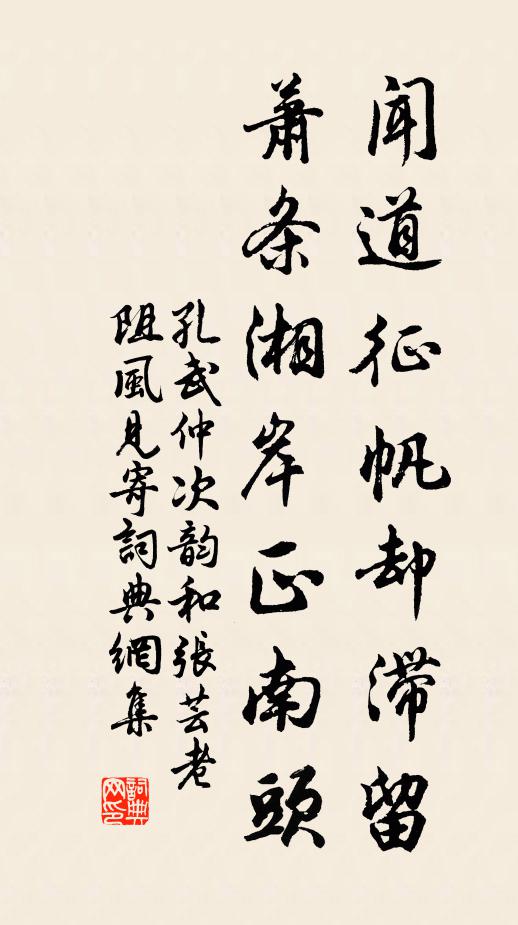 闻道征帆却滞留
萧条湘岸正南头
孔武仲次韵和張芸老
阻風見寄詞典網集
詞典网印